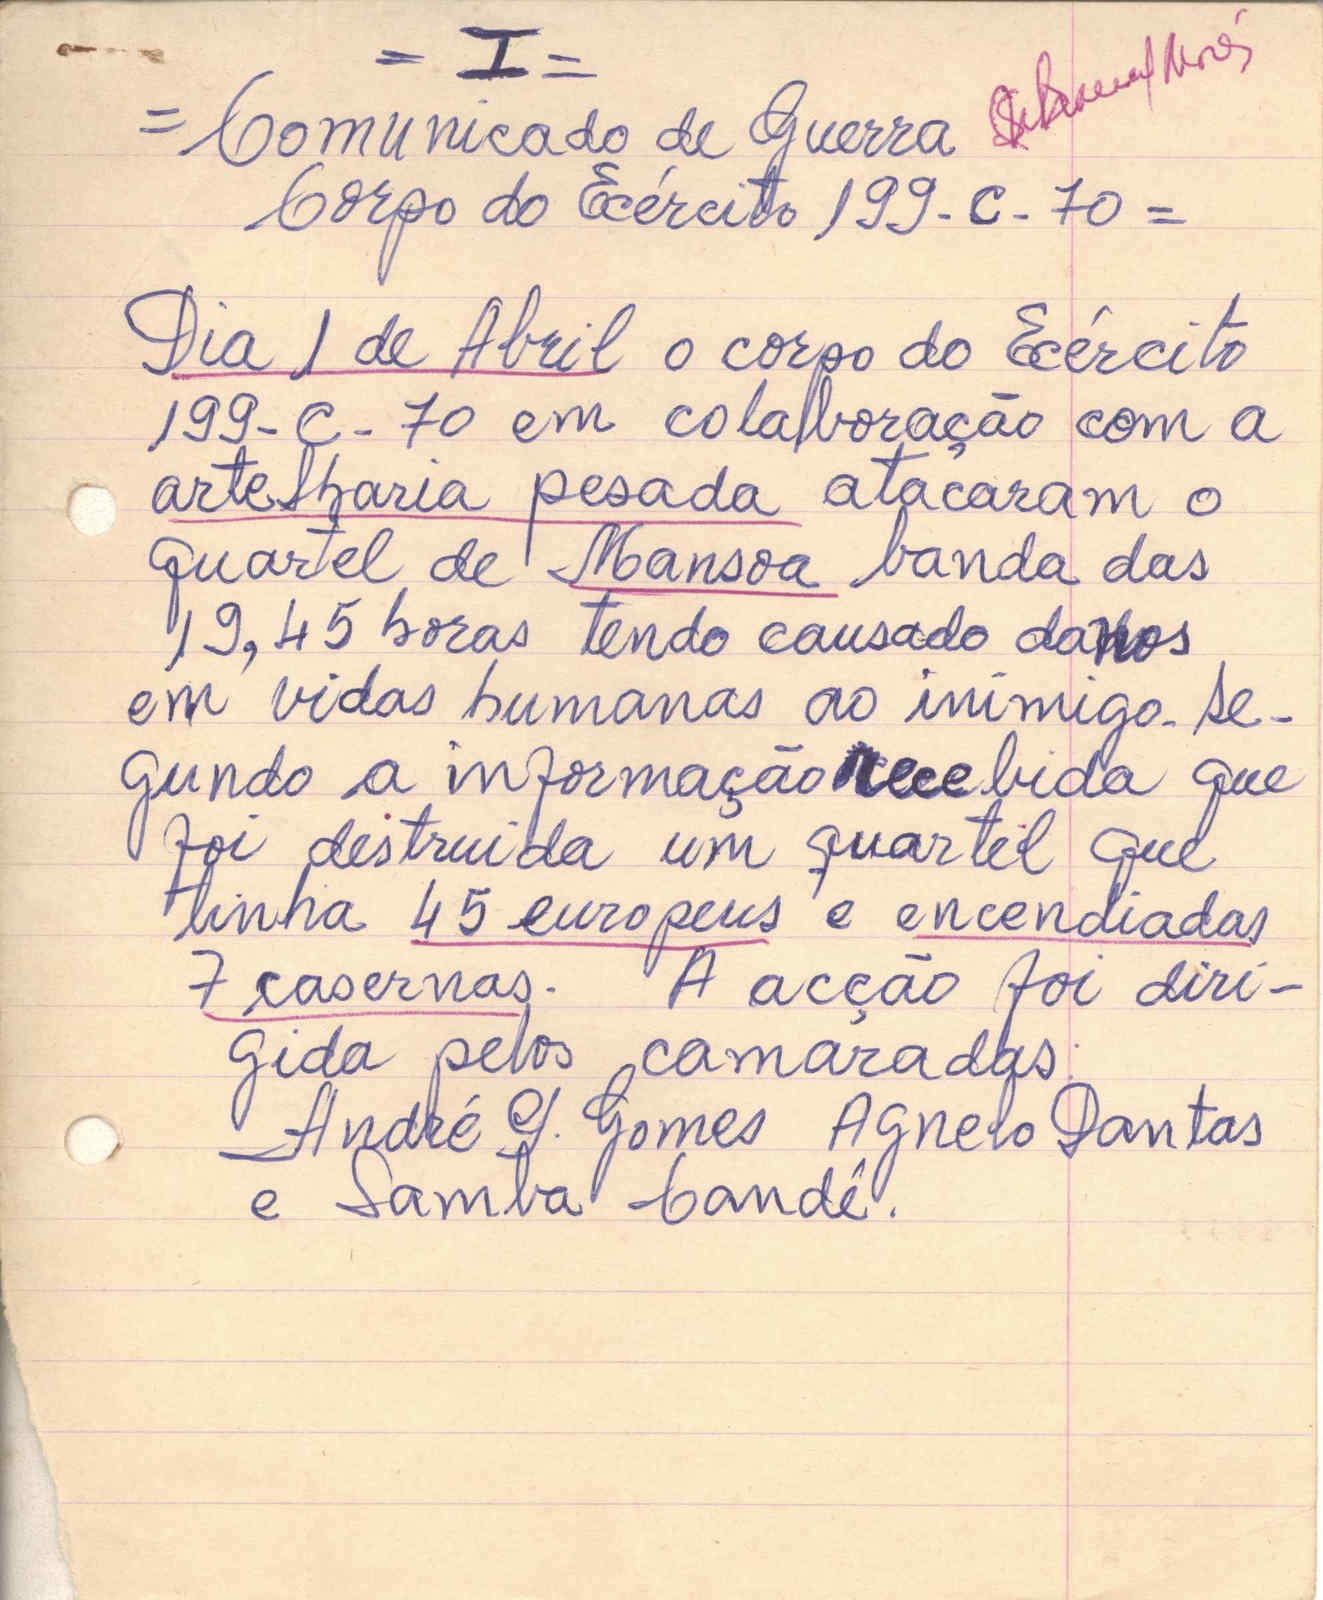 = I =
= Comunicado de Guerra
Corpo do Ecército 199-C-70 =
Dia 1 de Abril o corpo do Ecército
199-C-70 em colalboração com a
artelharia pesada atacaram o
quartel de Mansoa banda das
19,45 horas tendo causado danos
em vidas humanas ao inimigo. Se-
gundo a informação recebida que
foi destruida um quartel que
tinha 45 europeus e encendiadas
7 casernas. A acção foi diri-
gida pelos camaradas:
André G. Gomes Agnelo Dantas
e Samba Candé.